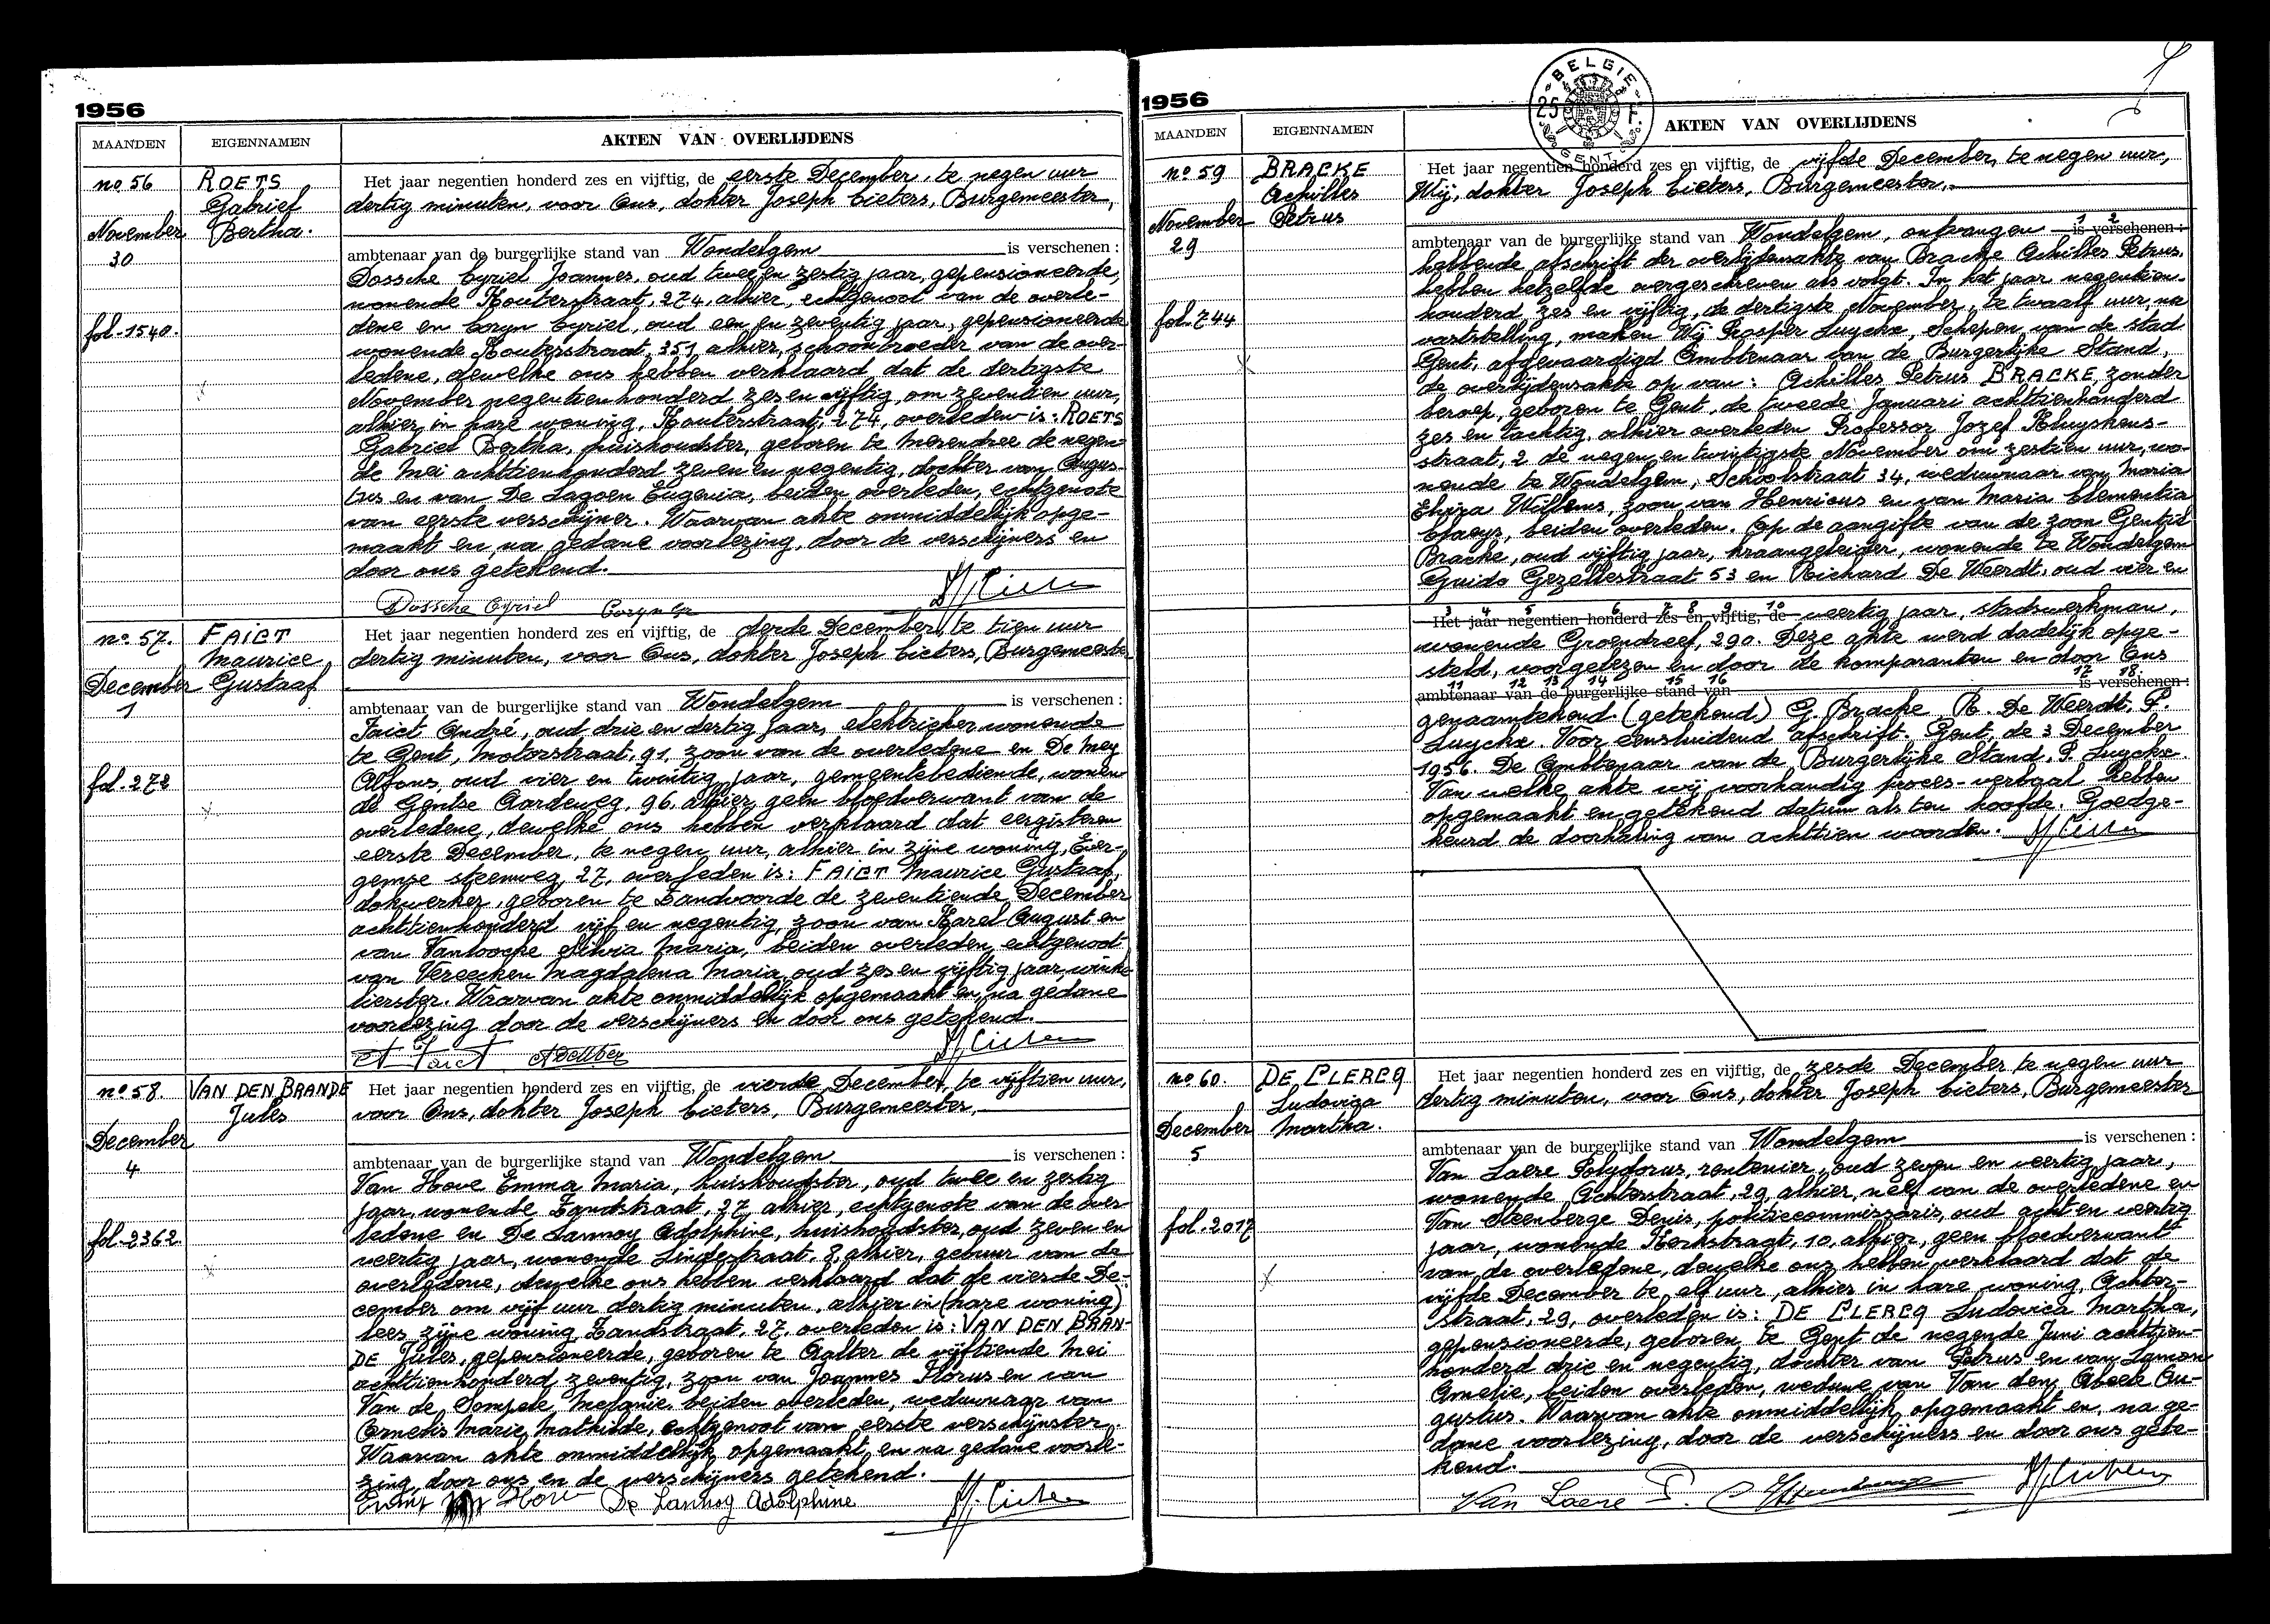 1956
MAANDEN
EIGENNAMEN
AKTEN VAN OVERLIJDENS
no 56
ROETS
Gabriel
Bertha.
November
30
fol. 1540.
Het jaar negentien honderd zes en vijftig, de eerste December, te negen uur
dertig minuten, voor Ons, dokter Joseph Cieters, Burgemeester,
ambtenaar van de burgerlijke stand van Wondelgem is verschenen :
Dossche Cyriel Joannes, oud twee en zestig jaar, gepensioneerde,
wonende Kouterstraat, 274, alhier, echtgenoot van de overle-
dene en Coryn Cyriel, oud een en zeventig jaar, gepensioneerde
wonende Kouterstraat, 351, alhier, schoonbroeder van de over-
ledene, dewelke ons hebben verklaard dat de dertigste
November negentienhonderd zes en vijftig, om zeventien uur,
alhier, in hare woning, Kouterstraat, 274, overleden is: ROETS
Gabriel Bertha, huishoudster, geboren te Merendree de negen-
de Mei achttienhonderd zeven en negentig, dochter van Augus-
tus en van De Lagoen Eugenia, beiden overleden, echtgenote
van eerste verschijner. Waarvan akte onmiddelijk opge-
maakt en, na gedane voorlezing, door de verschijners en
door ons getekend.
Dossche Cyriel Coryn Cyr
no 57.
FAICT
Maurice,
Gustaaf
December
1
fol. 272
Het jaar negentien honderd zes en vijftig, de derde December, te tien uur
dertig minuten, voor Ons, dokter Joseph Cieters, Burgemeester
ambtenaar van de burgerlijke stand van Wondelgem is verschenen :
Faict André, oud drie en dertig jaar, elektrieker wonende
te Gent, Motorstraat, 91, zoon van de overledene en De Mey
Alfons, oud vier en twintig jaar, gemeentebediende, wonen-
de Gentse Aardeweg, 96, alhier, geen bloedverwant van de
overledene, dewelke ons hebben verklaard dat eergisteren
eerste December, te negen uur, alhier in zijne woning, Ever-
gemse steenweg, 27, overleden is: FAICT Maurice Gustaaf,
dokwerker, geboren te Zandvoorde de zeventiende December
achttienhonderd vijf en negentig, zoon van Karel August en
van Vanlooche Silvia Maria, beiden overleden, echtgenoot
van Vereecken Magdalena Maria, oud zes en vijftig jaar, winke-
lierster. Waarvan akte onmiddelijk opgemaakt en, na gedane
voorlezing door de verschijners en door ons getekend.
A Faict
no 58.
VAN DEN BRANDE
Jules
December
4
fol. 2362
Het jaar negentien honderd zes en vijftig, de vierde December, te vijftien uur,
voor Ons, dokter Joseph Cieters, Burgemeester,
ambtenaar van de burgerlijke stand van Wondelgem is verschenen :
Van Hove Emma Maria, huishoudster, oud twee en zestig
jaar, wonende Zandstraat, 27 alhier, echtgenote van de over-
ledene en De Lannoy Adolphine, huishoudster, oud zeven en
veertig jaar, wonende Lindestraat, 8, alhier, gebuur van de
overledene, dewelke ons hebben verklaard dat de vierde De-
cember om vijf uur dertig minuten, alhier in (hare woning)
lees zijne woning Zandstraat, 27, overleden is: VAN DEN BRAN-
DE Jules, gepensioneerde, geboren te Aalter de vijftiende Mei
achttienhonderd zeventig, zoon van Joannes Florus en van
Van de Sompele Melanie, beiden overleden, weduwnaar van
Cornelis Marie Mathilde, echtgenoot van eerste verschijnster.
Waarvan akte onmiddellijk opgemaakt, en na gedane voorle-
zing, door ons en de verschijners getekend.
De Lannoy Adolphine
1956
BELGIE
25 F.
GENT
MAANDEN
EIGENNAMEN
AKTEN VAN OVERLIJDENS
no 59
BRACKE
Achilles
Petrus
November
29
fol. 744
Het jaar negentien honderd zes en vijftig, de vijfde December, te negen uur,
Wij, dokter Joseph Cieters, Burgemeester,
ambtenaar van de burgerlijke stand van Wondelgem, ontvangen is verschenen :
1 2
hebbende afschrift der overlijdensakte van Bracke Achilles Petrus,
hebben hetzelfde overgeschreven als volgt. In het jaar negentien-
honderd zes en vijftig, de dertigste November, te twaalf uur, na
vaststelling, maken Wij Prosper Luyckx, Schepen van de stad
Gent, afgevaardigd Ambtenaar van de Burgerlijke Stand,
de overlijdensakte op van: Achilles Petrus BRACKE, zonder
beroep, geboren te Gent, de tweede Januari achttienhonderd
zes en tachtig, alhier overleden Professor Jozef Kluyskens-
straat, 2 de negen en twintigste November om zestien uur, wo-
nende te Wondelgem, Schoolstraat 34, weduwnaar van Maria
Elvira Willems, zoon van Henricus en van Maria Clementia
Claeys, beiden overleden. Op de aangifte van de zoon Gentiel
Bracke, oud vijftig jaar, kraangeleider, wonende te Wondelgem
Guido Gezellestraat 53 en Richard De Weerdt, oud vier en
3 4 5 6 7 8 9 10
Het jaar negentien honderd zes en vijftig, de veertig jaar, stadswerkman,
wonende Groendreef, 290. Deze akte werd dadelijk opge-
steld, voorgelezen en door de komparanten en door Ons
11 12 13 14 15 16 17 18
ambtenaar van de burgerlijke stand van is verschenen :
genaamtekend. (getekend) G. Bracke R. De Weerdt, P.
Luyckx. Voor eensluidend afschrift. Gent, de 3 December
1956. De Ambtenaar van de Burgerlijke Stand, P. Luyckx.
Van welke akte wij voorhandig proces-verbaal hebben
opgemaakt en getekend datum als ten hoofde. Goedge-
keurd de doorhaling van achttien woorden.
no 60.
DE CLERCQ
Ludovica
Martha.
December
5
fol. 2017
Het jaar negentien honderd zes en vijftig, de zesde December te negen uur
dertig minuten, voor Ons, dokter Joseph Cieters, Burgemeester
ambtenaar van de burgerlijke stand van Wondelgem is verschenen :
Van Laere Polydorus, rentenier, oud zeven en veertig jaar,
wonende Achterstraat, 29, alhier, neef van de overledene en
Van Steenberge Denis, politiecommissaris, oud acht en veertig
jaar, wonende Kerkstraat, 10, alhier, geen bloedverwant
van de overledene, dewelke ons hebben verklaard dat de
vijfde December te elf uur, alhier in hare woning, Achter-
straat, 29, overleden is: DE CLERCQ Ludovica Martha,
gepensioneerde, geboren te Gent de negende Juni achttien-
honderd drie en negentig, dochter van Petrus en van Lamon
Amelie, beiden overleden, weduwe van Van den Abeele Au-
gustus. Waarvan akte onmiddellijk opgemaakt en, na ge-
dane voorlezing, door de verschijners en door ons gete-
kend.
Van Laere P.